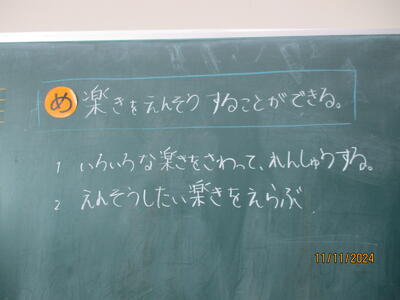 め 楽きをえんそうすることができる。
1 いろいろな楽きをさわって、れんしゅうする。
2 えんそうしたい楽きをえらぶ
11/11/2024